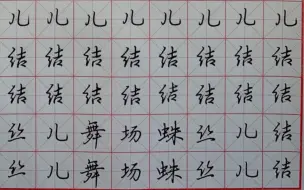 儿 儿 儿 儿 儿 儿 儿 儿
结 结 结 结 结 结 结 结
结 结 结 结 结 结 结 结
丝 儿 舞 场 蛛 丝 儿 结
丝 儿 舞 场 蛛 丝 儿 结